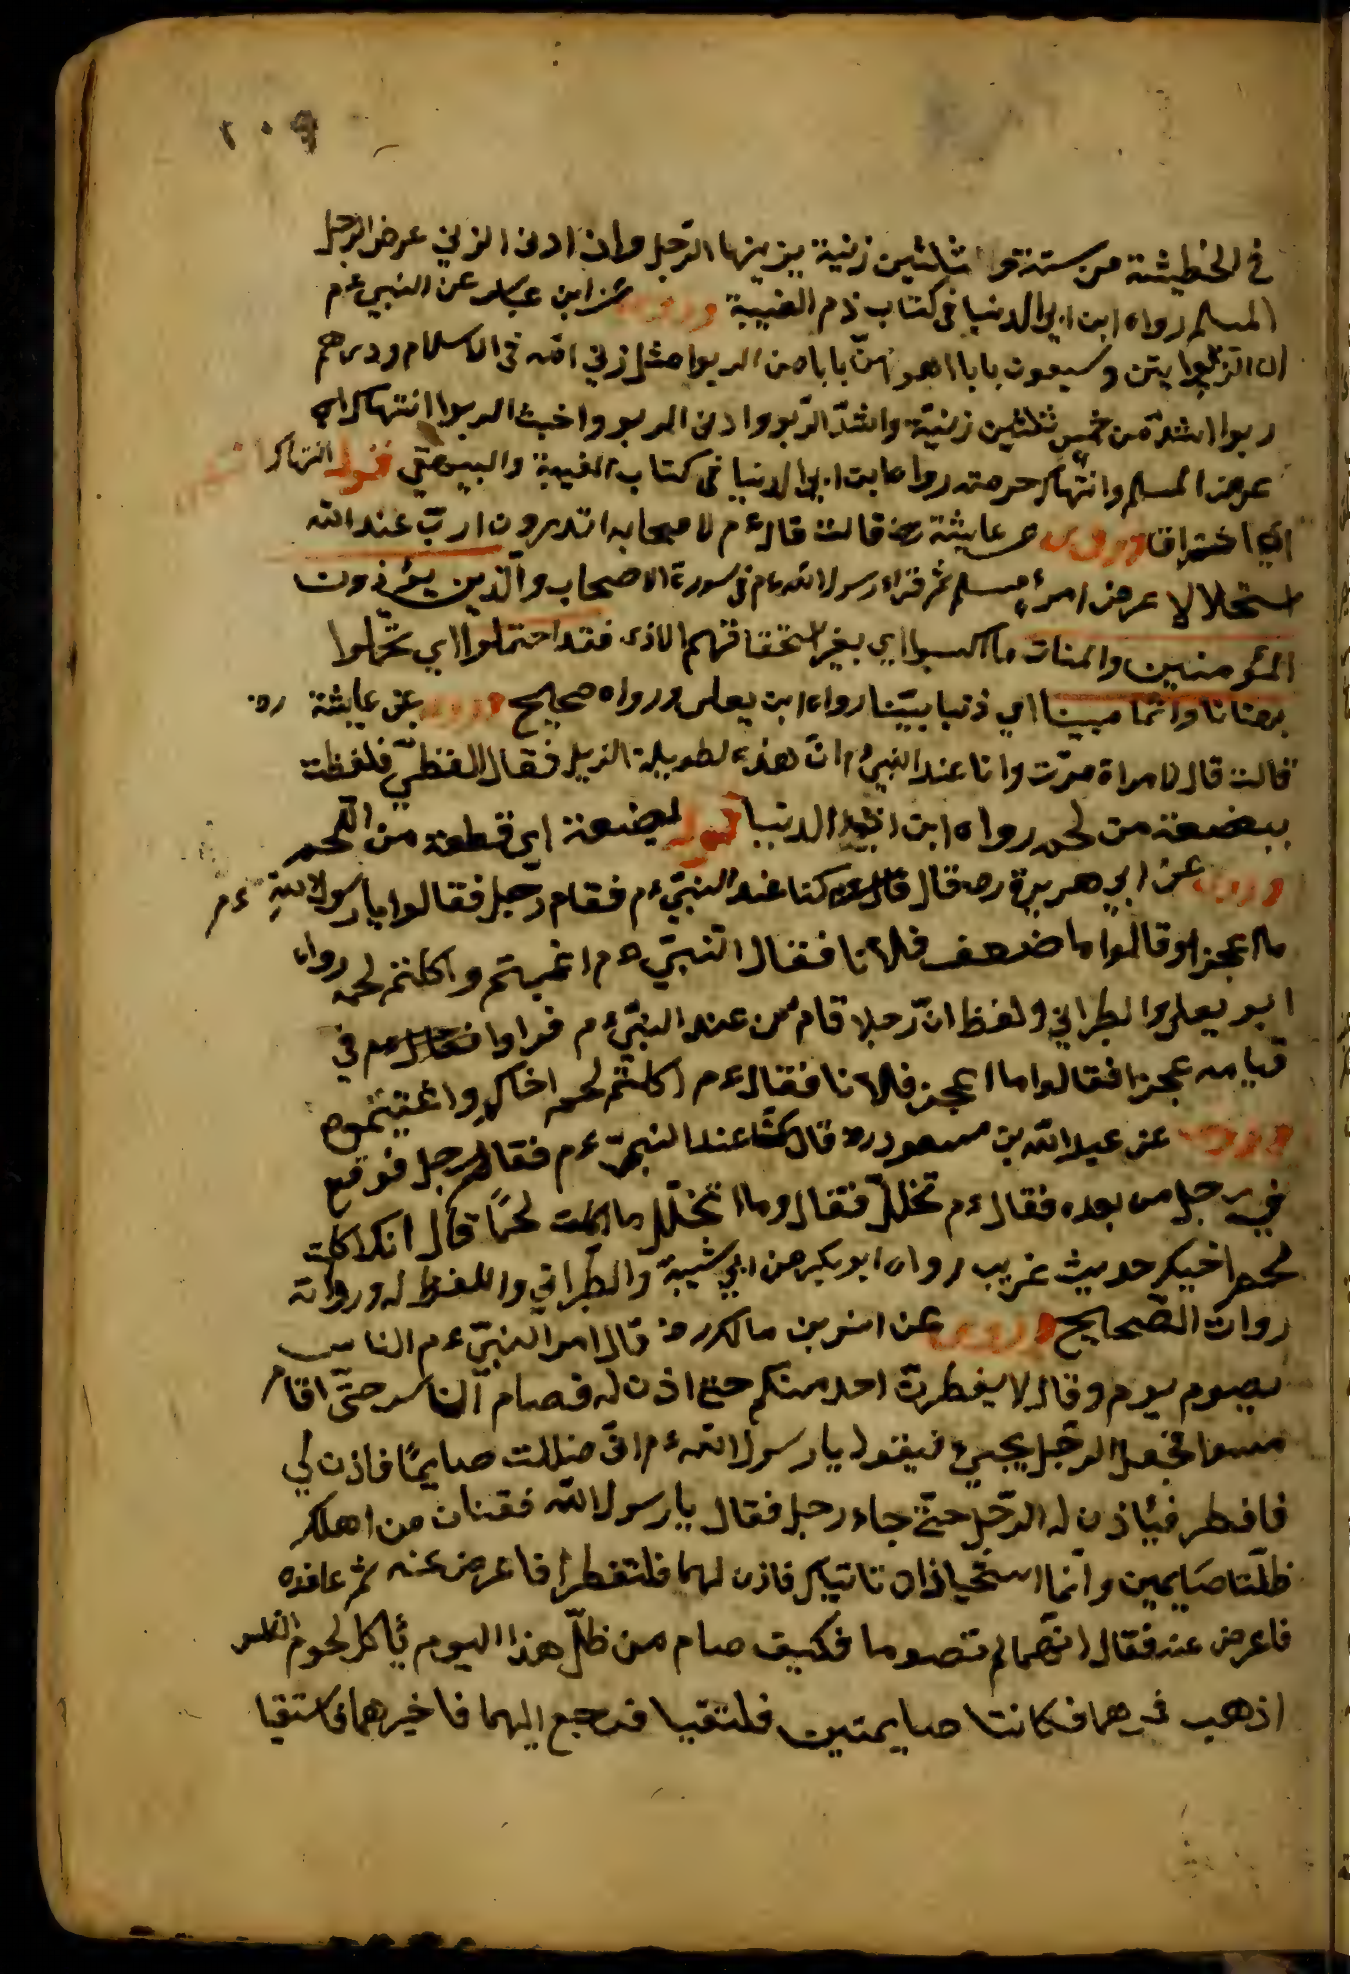 ٢٠٩
في الخطيئة من ستة و ثلثين زنية يزينها الرّجل وان ادنى الزنى عرض الرجل
المسلم رواه ابن ابي الدنيا في كتاب ذم الغيبة وروى عن ابن عباس عن النبي ءم
ان الربوا وسبعون بابا اهونهنّ بابا من الربوا مثل زنى امّه في الاسلام ودرهم
ربوا اشدّ من خمس ثلثين زنيّة واشدّ الرّبو وادنى الربو واخبث الربوا انتهاك
عرض المسلم وانتهاك حرمته رواه ابن ابي الدنيا في كتاب الغيبة والبيهقي قوله انتهاك
اي وروى عن عايشة رض قالت قال ءم لاصحابه اتدرون اربّ عند الله
استحلالا عرض امرئ مسلم ثم قراء رسول الله ءم في سورة الاصحاب والّذين يؤذون
المؤمنين والمنات ما اكسبوا اي بغير استحقاقهم الاذى فقد احتملوا اي تحمّلوا
بهتانا واثما مبينا اي ذنبا بيّنا رواه ابن يعلى ورواه صحيح وروى عن عايشة رض
قالت قال لامراة مرّت وانا عند النبي ءم انّ هذه لطويلة الذيل فقال الفظيّ فلفظت
ببضعة من لحم رواه ابن ابي الدنيا قوله لبضعة اي قطعة من اللّحم
وروى عن ابي هريرة رض قال كنا عند النبيّ ءم فقام رّجل فقالوا يا رسول الله ءم
ما اعجز او قالوا ما ضعف فلانا فقال النبيّ ءم اغبتم واكلتم لحمه رواه
ابو يعلى والطبراني ولفظ انّ رّجلا قام من عند النبيّ ءم فراوا في
قيامه عجزا فقالوا ما اعجز فلانا فقال ءم اكلتم لحم اخاكم واغتبتموه
وروى عن عبد الله بن مسعود رض قال كنّا عند النبيّ ءم فقام رجل فوقع
في رجل من بعده فقال ءم تخللّ فقال وما اتخلّل ما اكلت لحمًا قال انك اكلت
لحم اخيك حديث غريب رواه ابو بكر من ابي شيبة والطّبراني واللفظ له ورواته
روات الصّحايح وروى عن انس بن مالك رض قال امر النبيّ ءم الناس
بصوم يوم وقال لا يفطرنّ احد منكم حتى اذن له فصام النّاس حتّى اذا
مسوا فجعل الرّجل يجئ فيقول يا رسول الله ءم انّى ضللت صايمًا فاذن لي
فافطر فيئاذن له الرّجل حتّى جاء رجل فقال يا رسول الله فقتان من اهلك
ظلّتا صايمين وانّما استحيا ان تاتيك فاذن لهما فلتفطرا فاعرض عنه ثم عاوده
فاعرض عنه فقال انّهما لم تصوما فكيف صام من ظلّ هذا اليوم يأكل لحوم الناس
اذهب فمرهما فكانتا صايمتين فلتقيا فرجع اليهما فاخبرهما فاستقيا